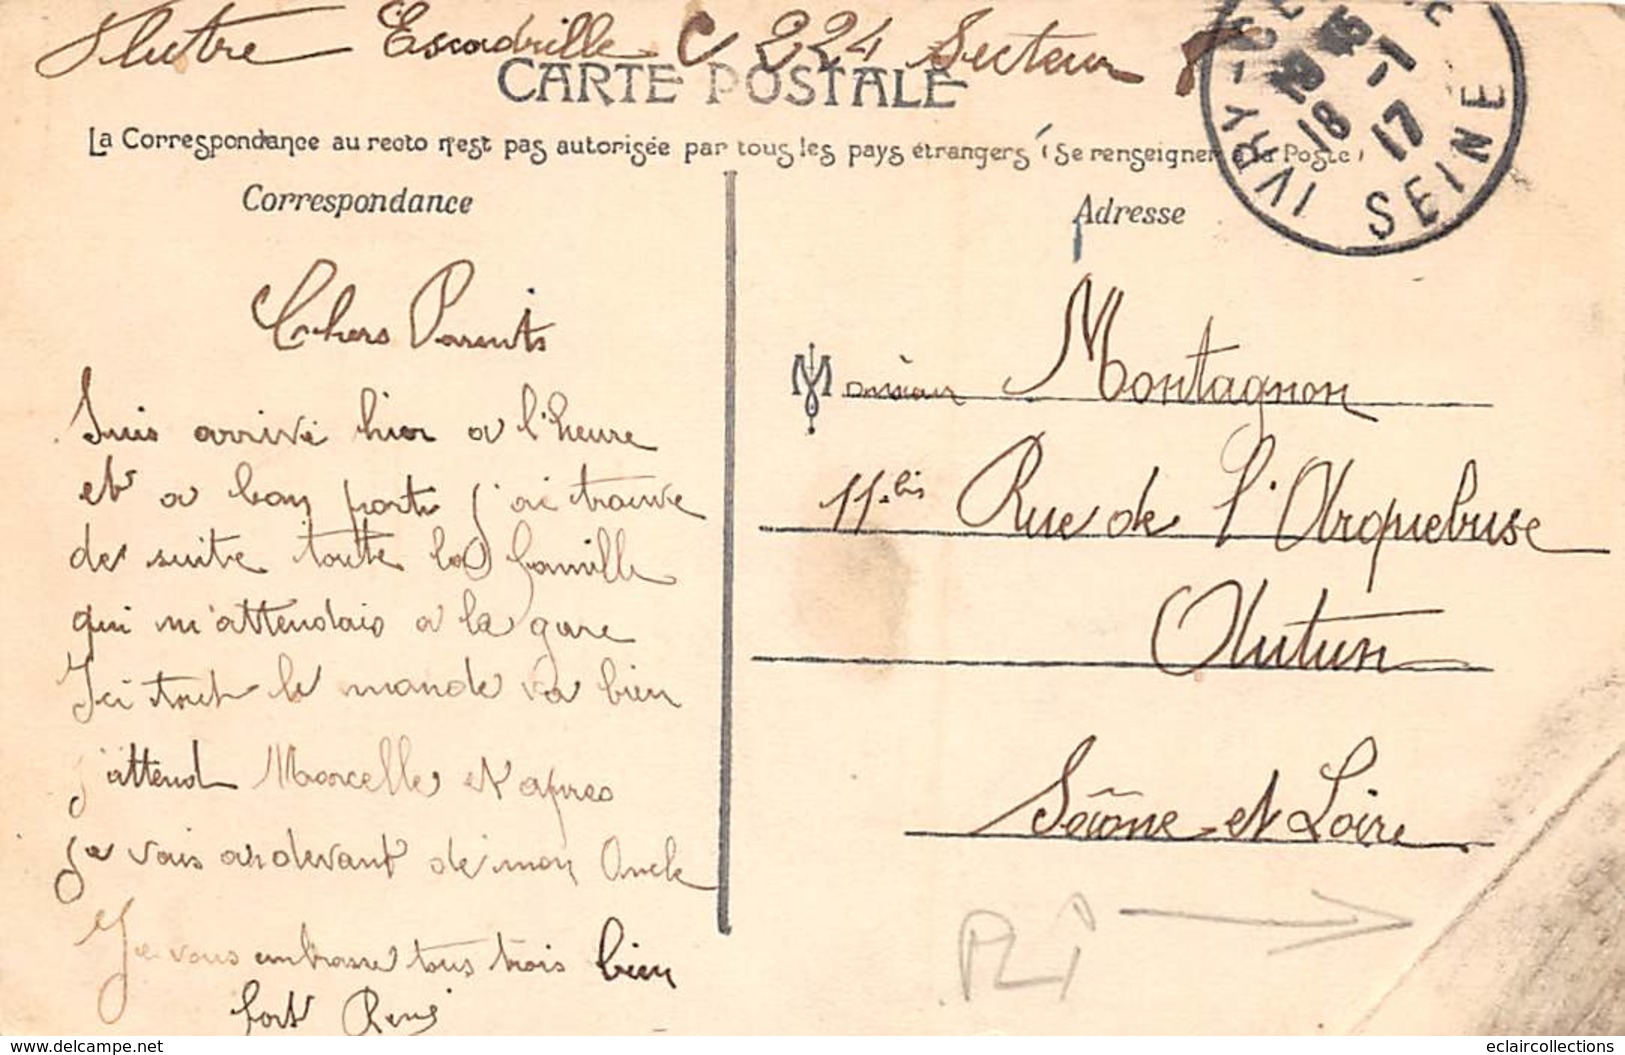 Flutre Escadrille C 224 Secteur
CARTE POSTALE
La Correspondance au recto n'est pas autorisée par tous les pays étrangers (Se renseigner à la Poste)
IVRY SEINE
18 -1
17
Correspondance
Adresse
Chers Parents
Suis arrivé hier a l'heure
et a bon port j'ai trouvé
de suite toute la famille
qui m'attendais a la gare
Ici tout le monde va bien
j'attend Marcelle et apres
je vais audevant de mon Oncle
Je vous embrasse tous trois bien
fort René
Monsieur Montagnon
11 bis Rue de l'Arquebuse
Autun
Saône et Loire
PLI
http://www.delcampe.net
eclaircollections